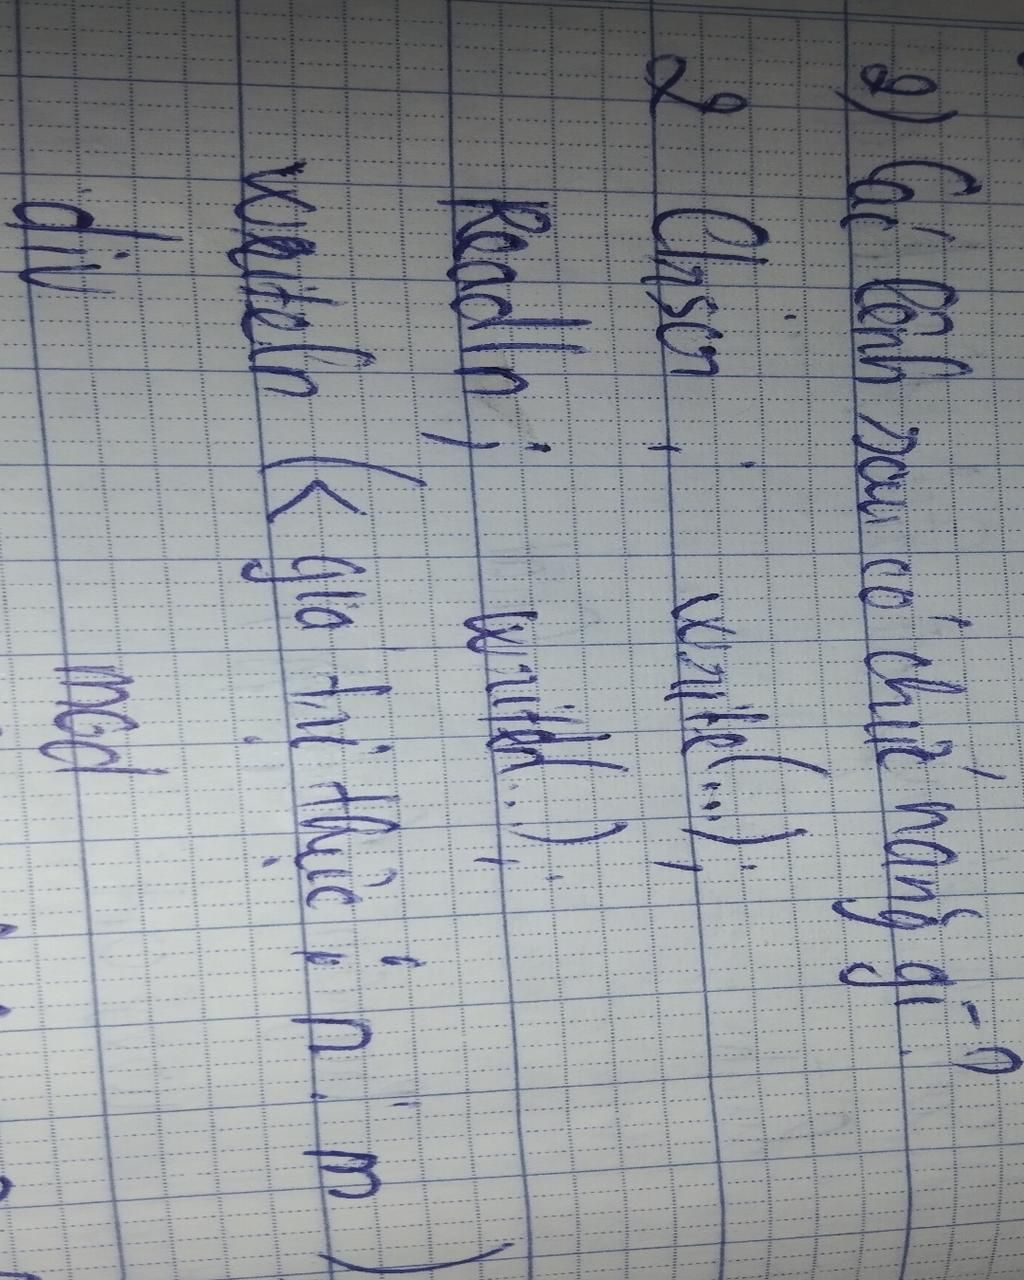 2) Các lệnh sau có chức năng gì?
Clrscr ; write(...);
Readln ; writeln(..);
writeln (< giá trị thực : n : m )
div mod